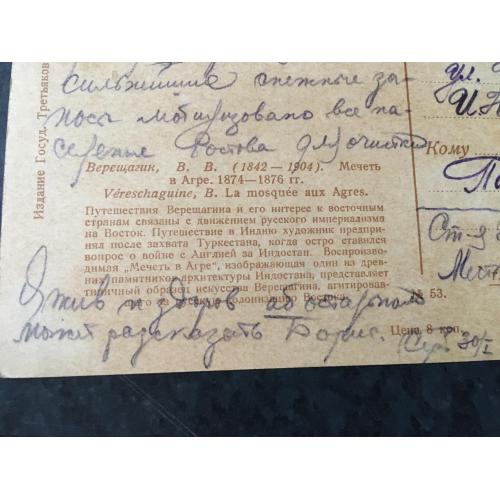 сильнейшие снежные за-
носы мобилизовано все на-
селение Ростова для очистки
Верещагин, В. В. (1842—1904). Мечеть
в Агре. 1874—1876 гг.
Véreschaguine, B. La mosquée aux Agres.
Путешествия Верещагина и его интерес к восточным
странам связаны с движением русского империализма
на Восток. Путешествие в Индию художник предпри-
нял после захвата Туркестана, когда остро ставился
вопрос о войне с Англией за Индостан. Воспроизво-
димая „Мечеть в Агре", изображающая один из древ-
них памятников архитектуры Индостана, представляет
типичный образец искусства Верещагина, агитировав-
шего за военную колонизацию Востока.
№ 53.
Я жив и здоров об остальном
может рассказать Борис.
Цена 8 коп.
Сер. 30/I
Издание Госуд. Третьяков
ул.
Кому
Ст-